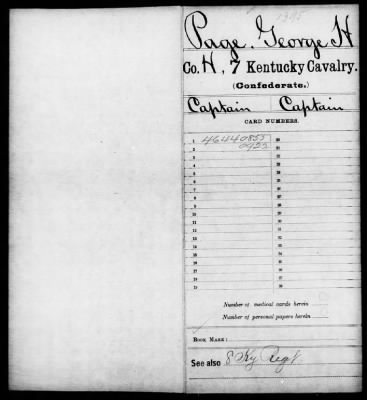 1375
Page, George H
Co. H, 7 Kentucky Cavalry.
(Confederate.)
Captain Captain
CARD NUMBERS.
1 46440855 20
2 0933 21
3 22
4 23
5 24
6 25
7 26
8 27
9 28
10 29
11 30
12 31
13 32
14 33
15 34
16 35
17 36
18 37
19 38
Number of medical cards herein
Number of personal papers herein
BOOK MARK:
See also 8 Ky Regt.